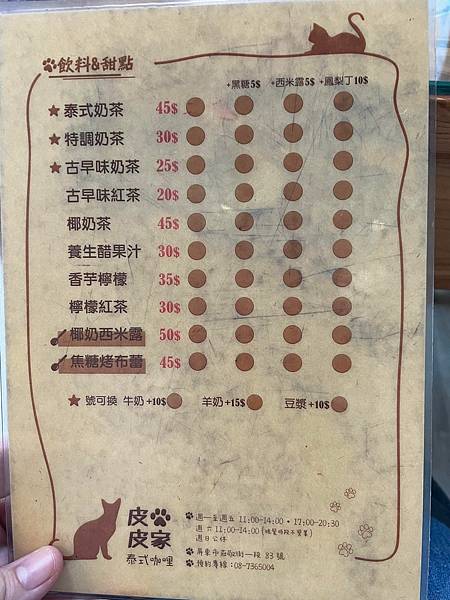 飲料&甜點
+黑糖5$ +西米露5$ +鳳梨丁10$
★泰式奶茶 45$
★特調奶茶 30$
★古早味奶茶 25$
古早味紅茶 20$
椰奶茶 45$
養生醋果汁 30$
香芋檸檬 35$
檸檬紅茶 30$
椰奶西米露 50$
焦糖烤布蕾 45$
★ 號可換 牛奶+10$ 羊奶+15$ 豆漿+10$
皮皮家
泰式咖哩
週一至週五 11:00-14:00 • 17:00-20:30
週六 11:00-14:00(晚餐時段不營業)
週日公休
屏東市莊敬街一段 83 號
預約專線:08-7365004